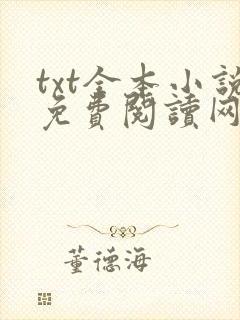 txt全本小說
免費閱讀网
董德海